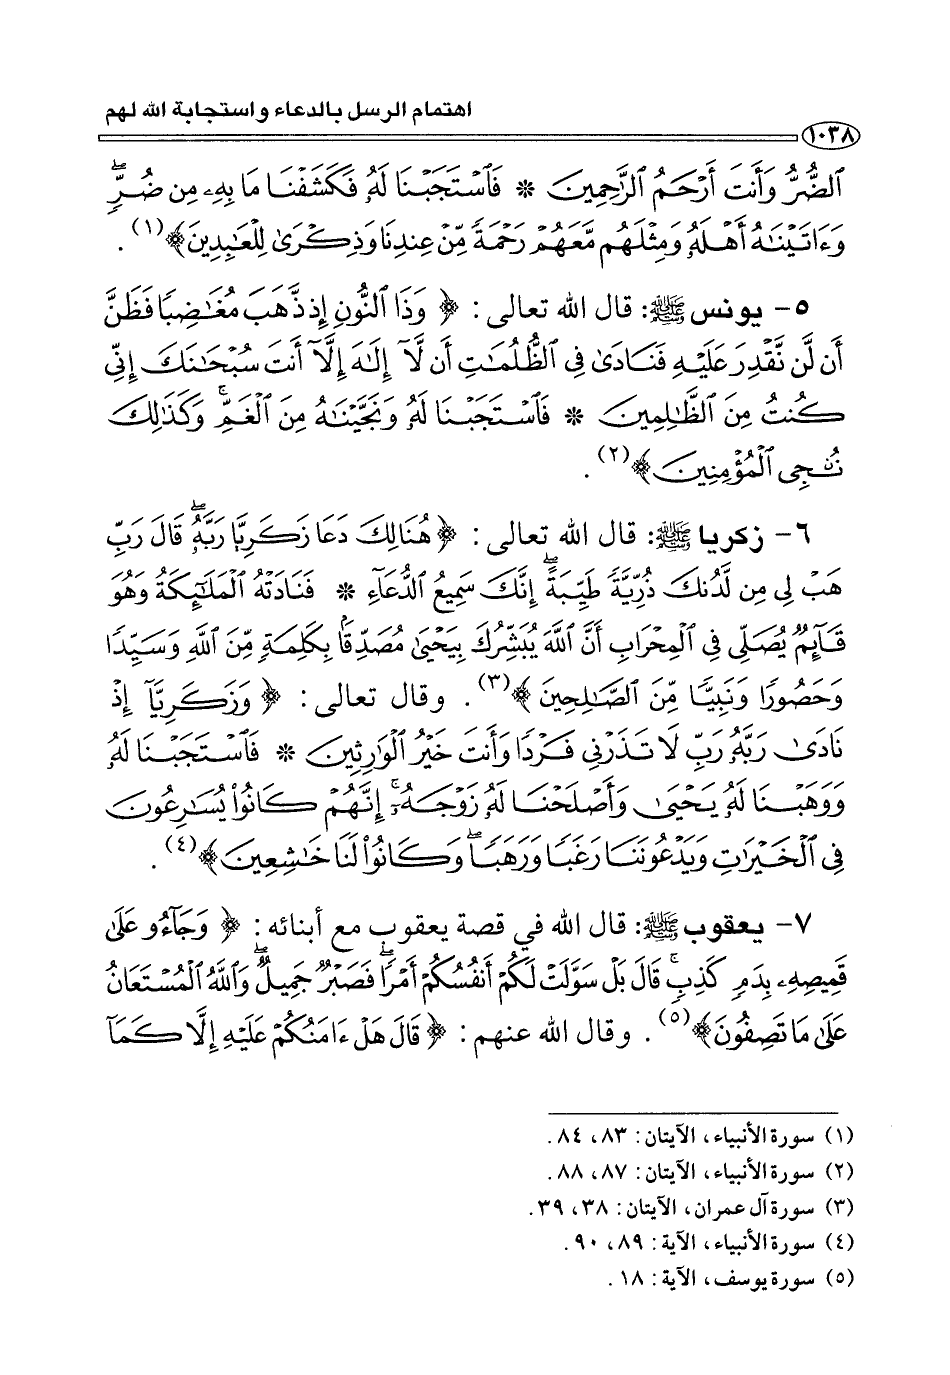 اهتمام الرسل بالدعاء واستجابة الله لهم
١٠٣٨
ٱلضُّرُّ وَأَنتَ أَرْحَمُ ٱلرَّٰحِمِينَ * فَٱسْتَجَبْنَا لَهُۥ فَكَشَفْنَا مَا بِهِۦ مِن ضُرٍّۖ
وَءَاتَيْنَٰهُ أَهْلَهُۥ وَمِثْلَهُم مَّعَهُمْ رَحْمَةً مِّنْ عِندِنَا وَذِكْرَىٰ لِلْعَٰبِدِينَ ﴾(١) .
٥- يونس ﷺ: قال الله تعالى : ﴿ وَذَا ٱلنُّونِ إِذ ذَّهَبَ مُغَٰضِبًا فَظَنَّ
أَن لَّن نَّقْدِرَ عَلَيْهِ فَنَادَىٰ فِى ٱلظُّلُمَٰتِ أَن لَّآ إِلَٰهَ إِلَّآ أَنتَ سُبْحَٰنَكَ إِنِّى
كُنتُ مِنَ ٱلظَّٰلِمِينَ * فَٱسْتَجَبْنَا لَهُۥ وَنَجَّيْنَٰهُ مِنَ ٱلْغَمِّۚ وَكَذَٰلِكَ
نُۨجِى ٱلْمُؤْمِنِينَ ﴾(٢) .
٦- زكريا ﷺ: قال الله تعالى : ﴿ هُنَالِكَ دَعَا زَكَرِيَّا رَبَّهُۥۖ قَالَ رَبِّ
هَبْ لِى مِن لَّدُنكَ ذُرِّيَّةً طَيِّبَةًۖ إِنَّكَ سَمِيعُ ٱلدُّعَآءِ * فَنَادَتْهُ ٱلْمَلَٰٓئِكَةُ وَهُوَ
قَآئِمٌ يُصَلِّى فِى ٱلْمِحْرَابِ أَنَّ ٱللَّهَ يُبَشِّرُكَ بِيَحْيَىٰ مُصَدِّقًۢا بِكَلِمَةٍ مِّنَ ٱللَّهِ وَسَيِّدًا
وَحَصُورًا وَنَبِيًّا مِّنَ ٱلصَّٰلِحِينَ ﴾(٣) . وقال تعالى : ﴿ وَزَكَرِيَّآ إِذْ
نَادَىٰ رَبَّهُۥ رَبِّ لَا تَذَرْنِى فَرْدًا وَأَنتَ خَيْرُ ٱلْوَٰرِثِينَ * فَٱسْتَجَبْنَا لَهُۥ
وَوَهَبْنَا لَهُۥ يَحْيَىٰ وَأَصْلَحْنَا لَهُۥ زَوْجَهُۥٓۚ إِنَّهُمْ كَانُوا۟ يُسَٰرِعُونَ
فِى ٱلْخَيْرَٰتِ وَيَدْعُونَنَا رَغَبًا وَرَهَبًاۖ وَكَانُوا۟ لَنَا خَٰشِعِينَ ﴾(٤) .
٧- يعقوب ﷺ: قال الله في قصة يعقوب مع أبنائه : ﴿ وَجَآءُو عَلَىٰ
قَمِيصِهِۦ بِدَمٍ كَذِبٍۚ قَالَ بَلْ سَوَّلَتْ لَكُمْ أَنفُسُكُمْ أَمْرًاۖ فَصَبْرٌ جَمِيلٌۖ وَٱللَّهُ ٱلْمُسْتَعَانُ
عَلَىٰ مَا تَصِفُونَ ﴾(٥) . وقال الله عنهم : ﴿ قَالَ هَلْ ءَامَنُكُمْ عَلَيْهِ إِلَّا كَمَآ
(١) سورة الأنبياء، الآيتان: ٨٣، ٨٤.
(٢) سورة الأنبياء، الآيتان: ٨٧، ٨٨.
(٣) سورة آل عمران، الآيتان: ٣٨، ٣٩.
(٤) سورة الأنبياء، الآية: ٨٩، ٩٠.
(٥) سورة يوسف، الآية: ١٨.